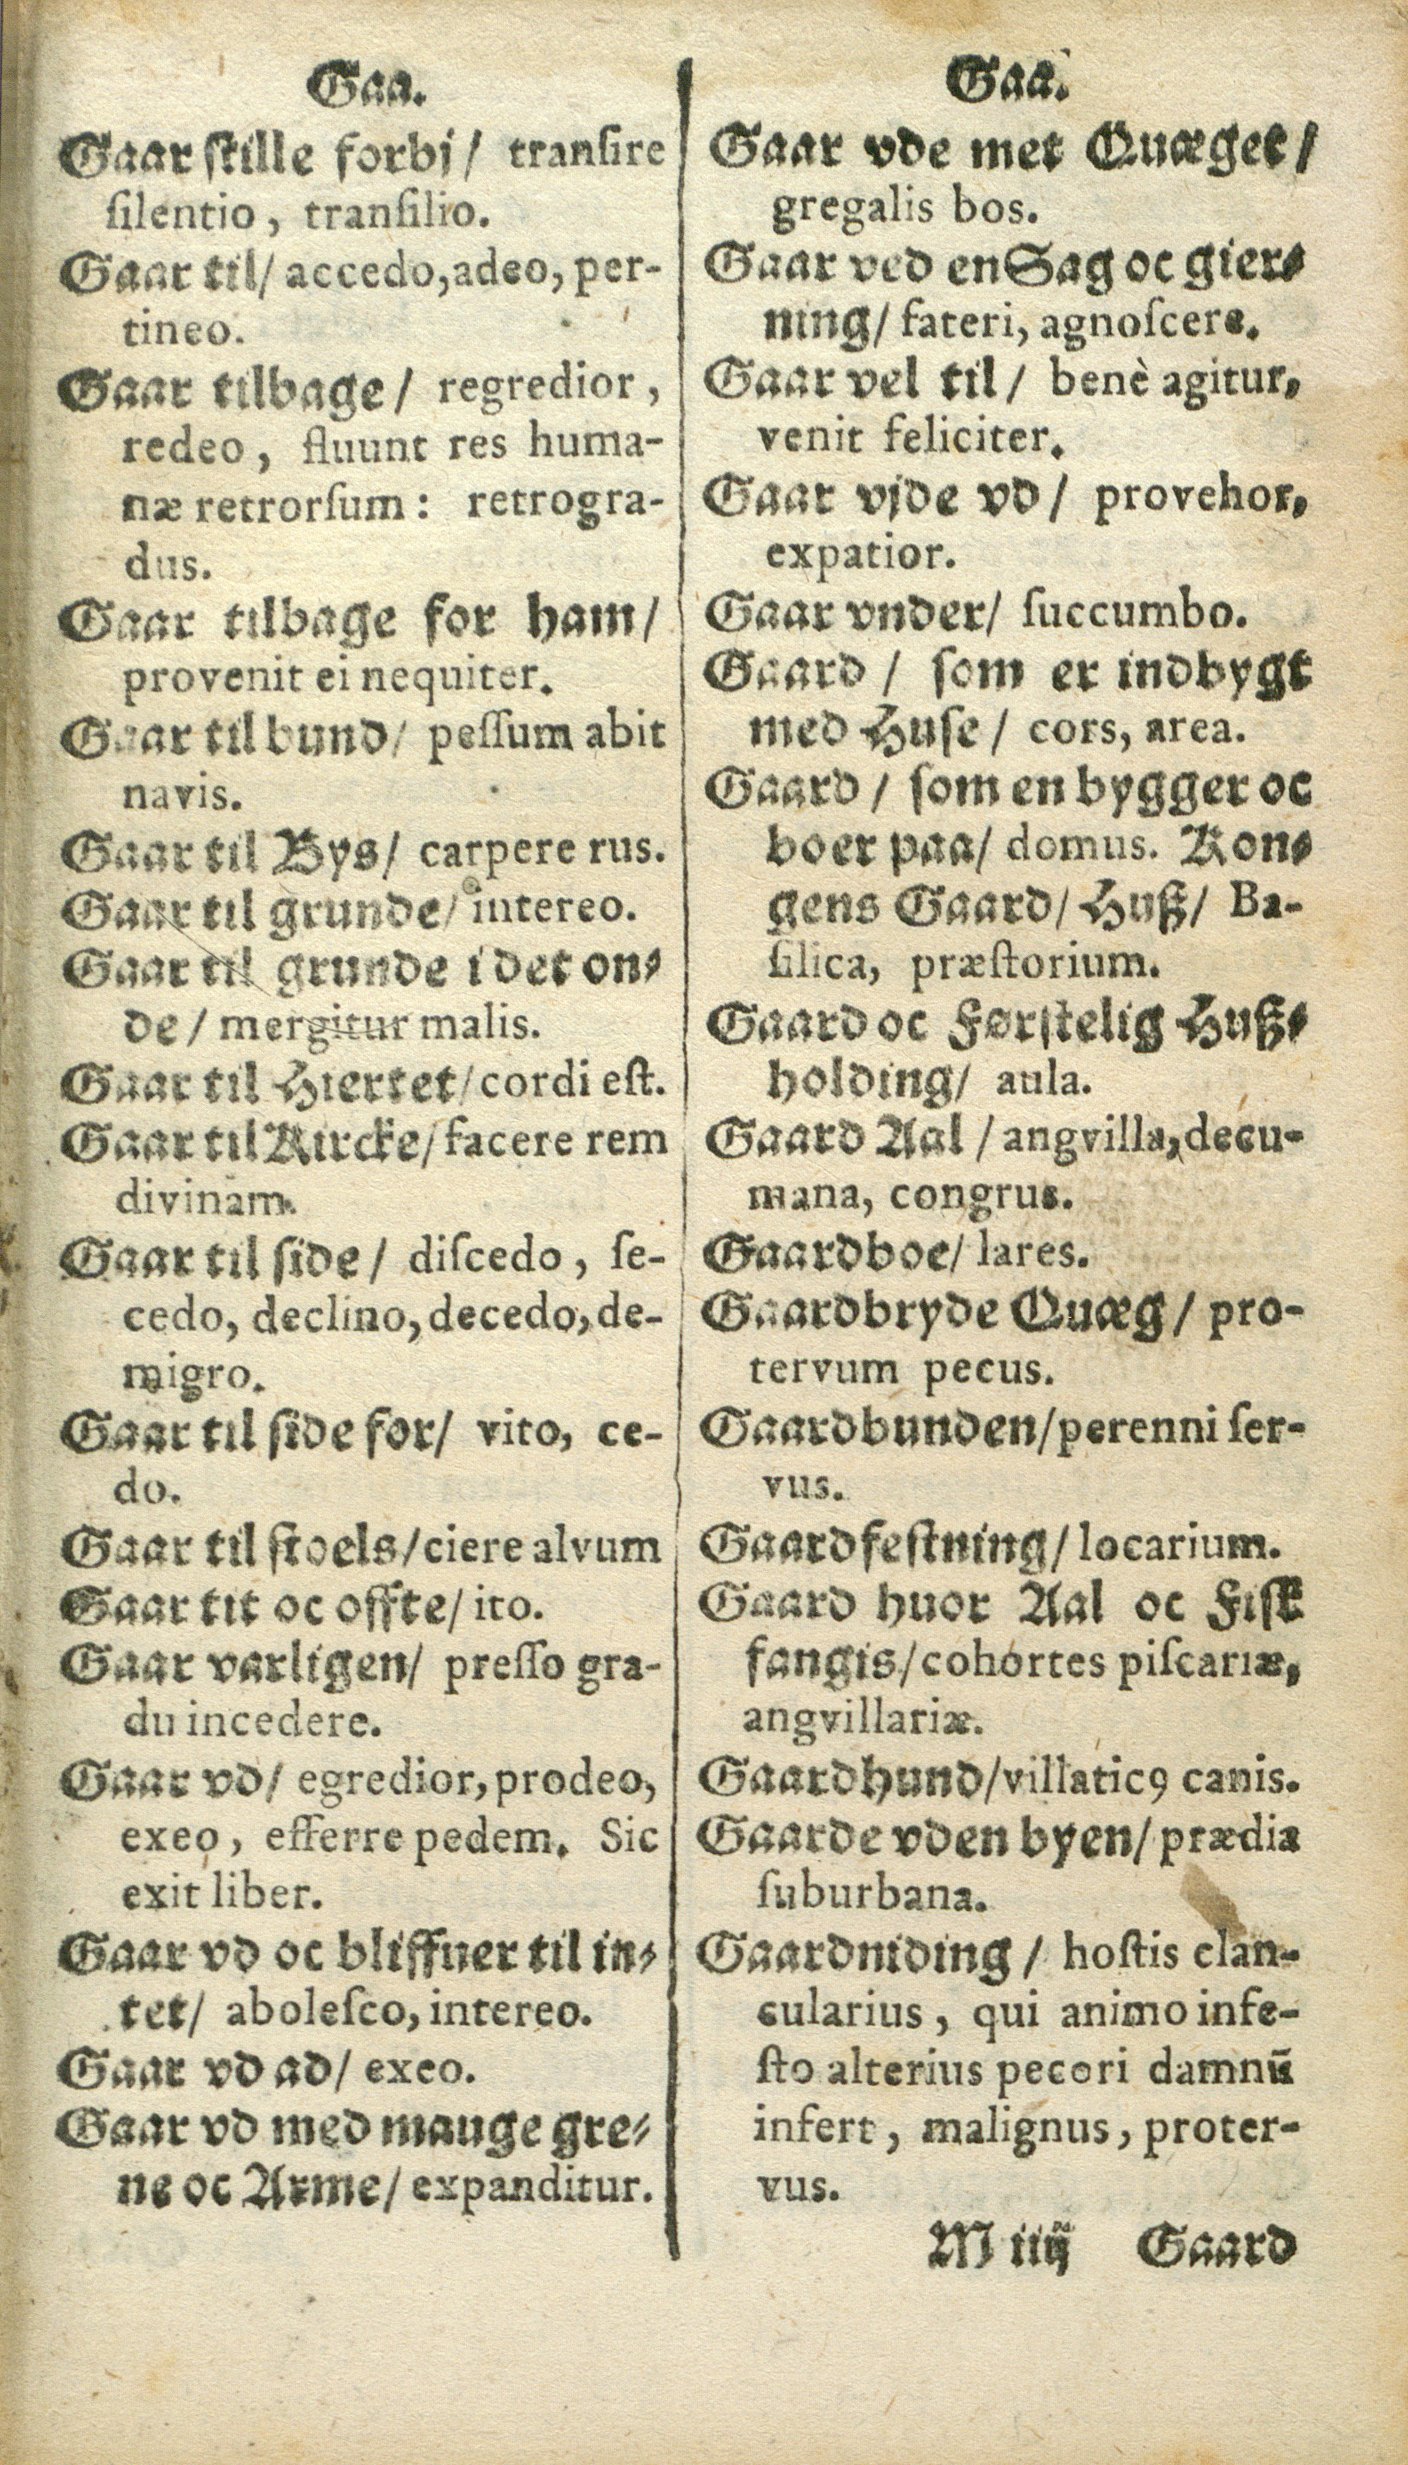 Gaa.
Gaar ſtille forbi/ tranſire
ſilentio, tranſilio.
Gaar til/ accedo, adeo, per-
tineo.
Gaar tilbage/ regredior,
redeo, fluunt res huma-
næ retrorſum: retrogra-
dus.
Gaar tilbage for ham/
provenit ei nequiter.
Gaar til bund/ peſſum abit
navis.
Gaar til Bys/ carpere rus.
Gaar til grunde/ intereo.
Gaar til grunde i det on-
de/ mergitur malis.
Gaar til Hiertet/ cordi eſt.
Gaar til Kircke/ facere rem
divinam.
Gaar til ſide/ diſcedo, ſe-
cedo, declino, decedo, de-
migro.
Gaar til ſide for/ vito, ce-
do.
Gaar til ſtoels/ ciere alvum
Gaar tit oc offte/ ito.
Gaar varligen/ preſſo gra-
du incedere.
Gaar vd/ egredior, prodeo,
exeo, efferre pedem. Sic
exit liber.
Gaar vd oc bliffner til in-
tet/ aboleſco, intereo.
Gaar vd ad/ exeo.
Gaar vd med mauge gre-
ne oc Arme/ expanditur.
Gaa.
Gaar vde met Quæget/
gregalis bos.
Gaar ved en Sag oc gier-
ning/ fateri, agnoſcere.
Gaar vel til/ benè agitur,
venit feliciter.
Gaar vjde vd/ provehor,
expatior.
Gaar vnder/ ſuccumbo.
Gaard/ ſom er indbygt
med Huſe/ cors, area.
Gaard/ ſom en bygger oc
boer paa/ domus. Kon-
gens Gaard/ Huß/ Ba-
ſilica, præſtorium.
Gaard oc Førſtelig Huß-
holding/ aula.
Gaard Aal/ angvilla, decu-
mana, congrus.
Gaardboe/ lares.
Gaardbryde Quæg/ pro-
tervum pecus.
Gaardbunden/ perenni ſer-
vus.
Gaardfeſtning/ locarium.
Gaard huor Aal oc Fiſk
fangis/ cohortes piſcariæ,
angvillariæ.
Gaardhund/ villaticꝯ canis.
Gaarde vden byen/ prædia
ſuburbana.
Gaardniding/ hoſtis clan-
cularius, qui animo infe-
ſto alterius pecori damnū
infert, malignus, proter-
vus.
M iiij Gaard